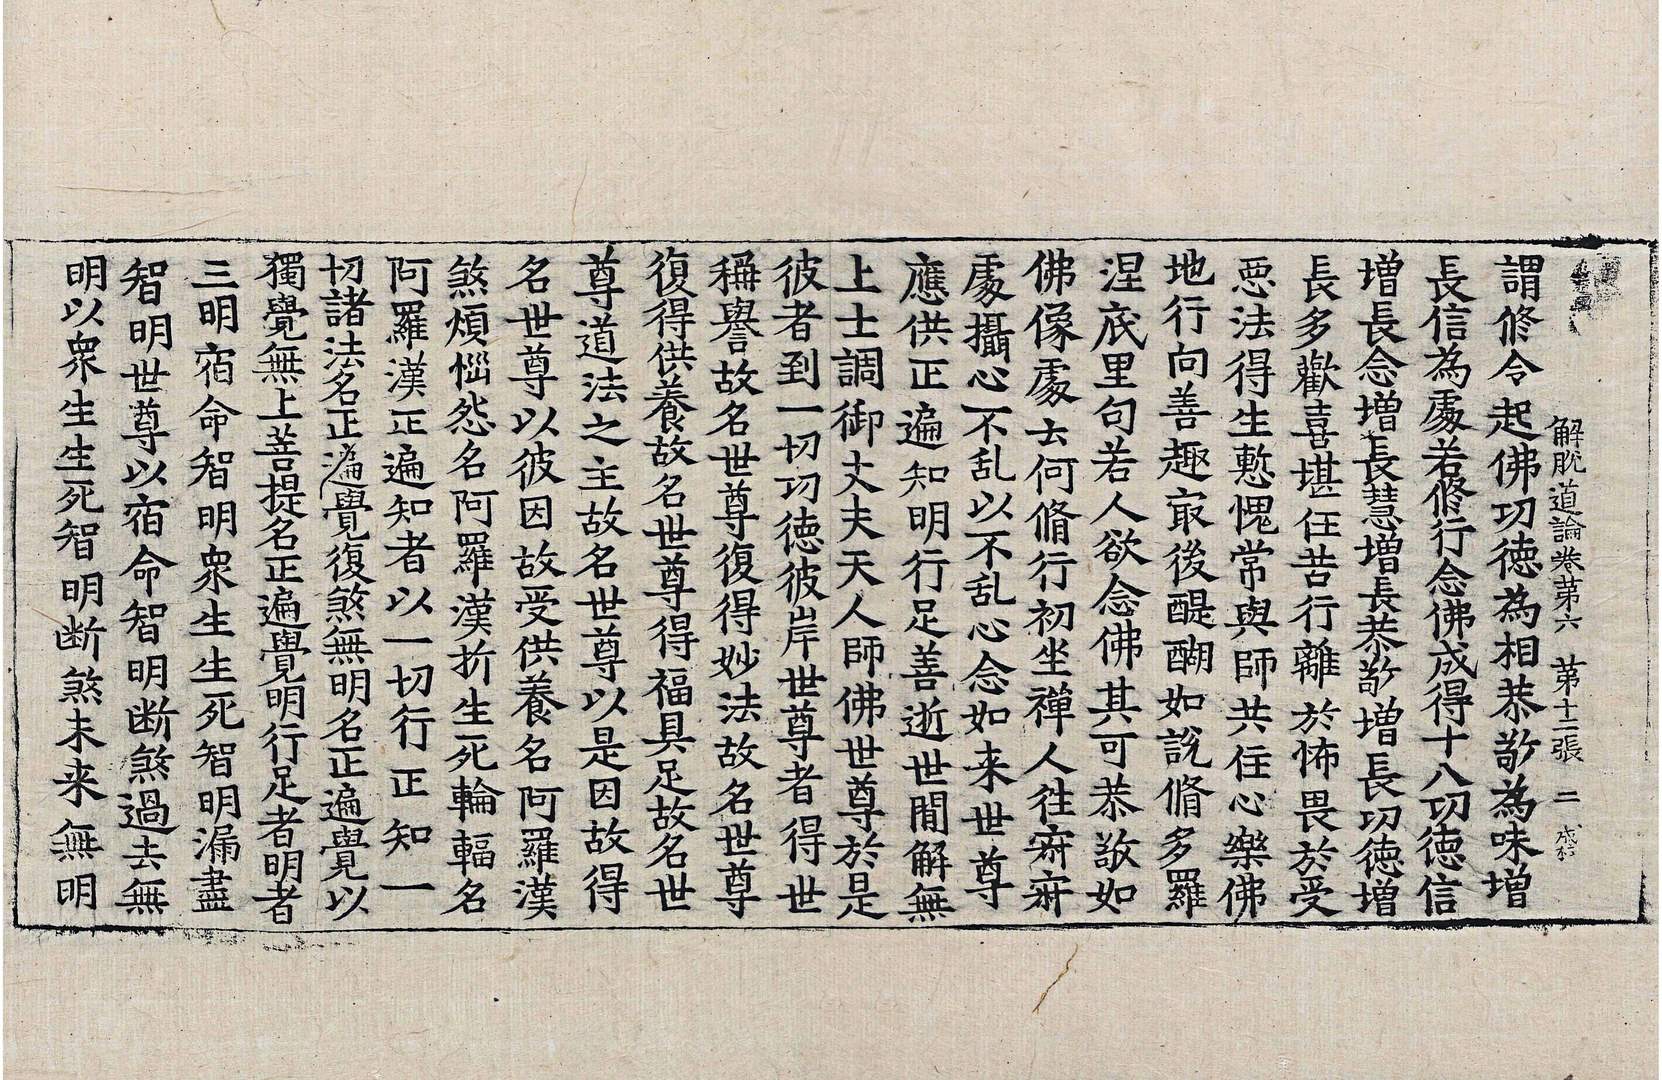 解脫道論卷第六 第十二張 二
謂修令起佛功德為相恭敬為味增
長信為處若修行念佛成得十八功徳信
增長念增長慧增長恭敬增長功徳增
長多歡喜堪任苦行離於怖畏於受
惡法得生慙愧常與師共住心樂佛
地行向善趣㝡後醍醐如說脩多羅
涅底里句若人欲念佛其可恭敬如
佛像處云何脩行初坐禪人徃寂寂
處攝心不乱以不乱心念如来世尊
應供正遍知明行足善逝世間解無
上士調御丈夫天人師佛世尊於是
彼者到一切功徳彼岸世尊者得世
稱譽故名世尊復得妙法故名世尊
復得供養故名世尊得福具足故名世
尊道法之主故名世尊以是因故得
名世尊以彼因故受供養名阿羅漢
煞煩惱怨名阿羅漢折生死輪輻名
阿羅漢正遍知者以一切行正知一
切諸法名正遍覺復煞無明名正遍覺以
獨覺無上菩提名正遍覺明行足者明者
三明宿命智明衆生生死智明漏盡
智明世尊以宿命智明断煞過去無
明以衆生生死智明断煞未来無明